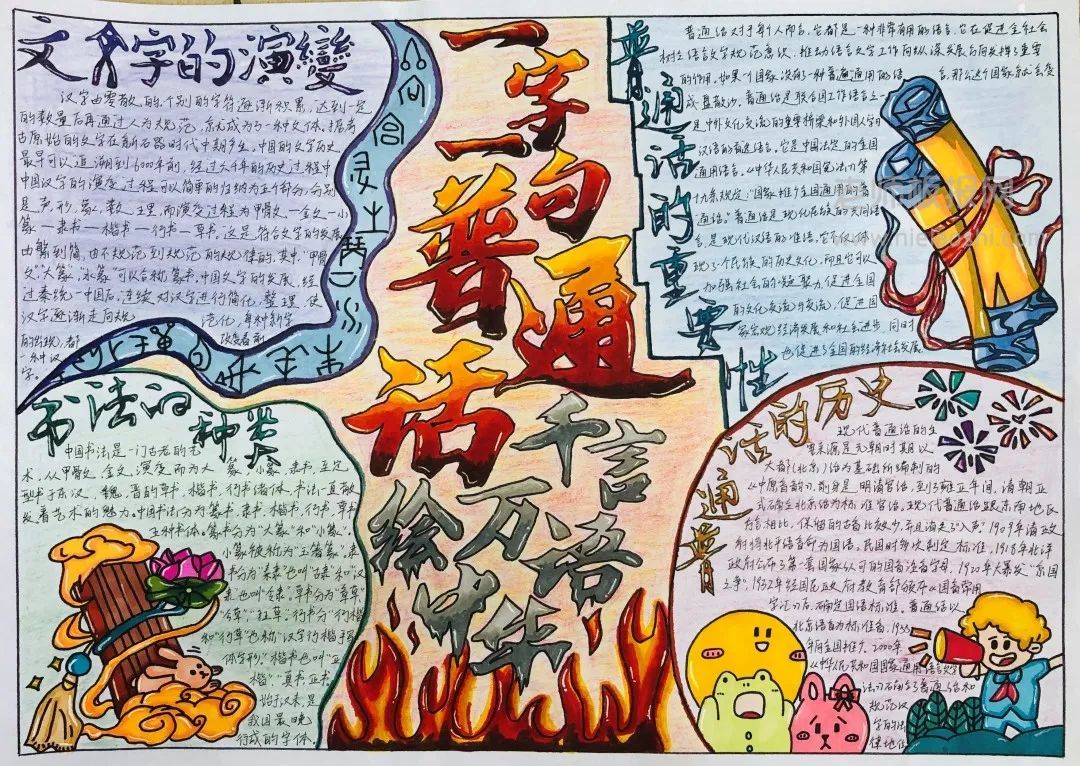 文字的演變
汉字由零散的、个别的字符逐渐积累，达到一定
的数量后再通过人为规范，系元成为了一种文体。据考
古原始的文字在新石器时代中期产生，中国的文字历史
最早可以追溯到6000年前，经过大千年的历史过程中
中国汉字的演变过程可以简单的归纳为五个部分，分别
是声、形、象、数、理，而演变过程为甲骨文一金文一小
篆一隶书一楷书一行书一草书。这是符合文字的发展
由繁到简，由不规范到规范的规律的，其中，“甲骨
文”“大篆”“小篆”可以合称篆书，中国文字的发展，经
过秦统一中国后，连续对汉字进行简化、整理，使
汉字逐渐走向规范化，每种新字
的出现，都
一种汉
字。
一字一句普通话
千言万语绘中华
普通话的重要性
普通话对于每个人而言，它都是一种非常有用的语言，它在促进全社会
树立语言文字规范意识，推动语言文字工作向纵深发展方向支持了重要
的作用，如果一个国家没有一种普遍通用的语言，那么这个国家就会变
成一盘散沙，普通话是联合国工作语言之一
是中外文化交流的重要桥梁和外国人学习
汉语的首选语言，它是中国法定的全国
通用语言，《中华人民共和国宪法》第
十九条规定：“国家推广全国通用的普
通话。”普通话是现代汉民族的共同语
言，是现代汉语的标准语，它不仅体
现了一个民族的历史文化，而且它可以
加强社会的凝聚力，促进全国
的文化交流与交流，促进国
家宏观经济发展和社会进步，同时
也促进了全国的经济社会发展
书法的种类
中国书法是一门古老的艺
术，从甲骨文、金文演变而为大篆、小篆、隶书，至定
型于东汉、魏、晋的草书、楷书、行书诸体，书法一直散
发着艺术的魅力。中国书法分为篆书、隶书、楷书、行书、草书
五种书体。篆书分为“大篆”和“小篆”。
小篆被称为“玉箸篆”，隶
书分为“秦隶”也叫“古隶”和“汉
隶”也叫“今隶”。草书分为“章草”
“今草”“狂草”。行书分“行楷”
和“行草”也称“汉字行楷
体字形”，楷书也叫“正
楷”“真书”“正书”
始于汉末，是
我国最晚
形成的字体。
普通话的历史
现代普通话的主
要来源是元朝时期以
大都（北京）话为基础所编制的
《中原音韵》，前身是明清官话，到了雍正年间，清朝正
式确立北京话为标准官话。现代普通话跟东南地区
方言相比，保留的古音比较少，并且消失了“入声”1909年清政
府将北平语音命为国语，民国时多次制定标准，1918年北洋
政府公布了第一套国家认可的国音注音字母，1920年大爆发“京国
之争”，1932年经国民政府教育部颁布《国音常用
字汇》后，确定国语标准。普通话以
北京语音为标准音，1955
年向全国推广，2000年
《中华人民共和国国家通用语言文字
法》确立了普通话和
规范汉
字的法
律地位